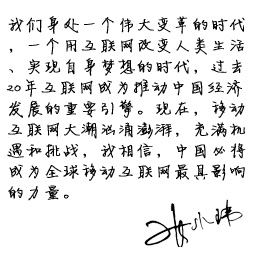 我们身处一个伟大变革的时代
，一个用互联网改变人类生活
、实现自身梦想的时代，过去
20年互联网成为推动中国经济
发展的重要引擎。现在，移动
互联网大潮汹涌澎湃，充满机
遇和挑战，我相信，中国必将
成为全球移动互联网最具影响
的力量。
小玮